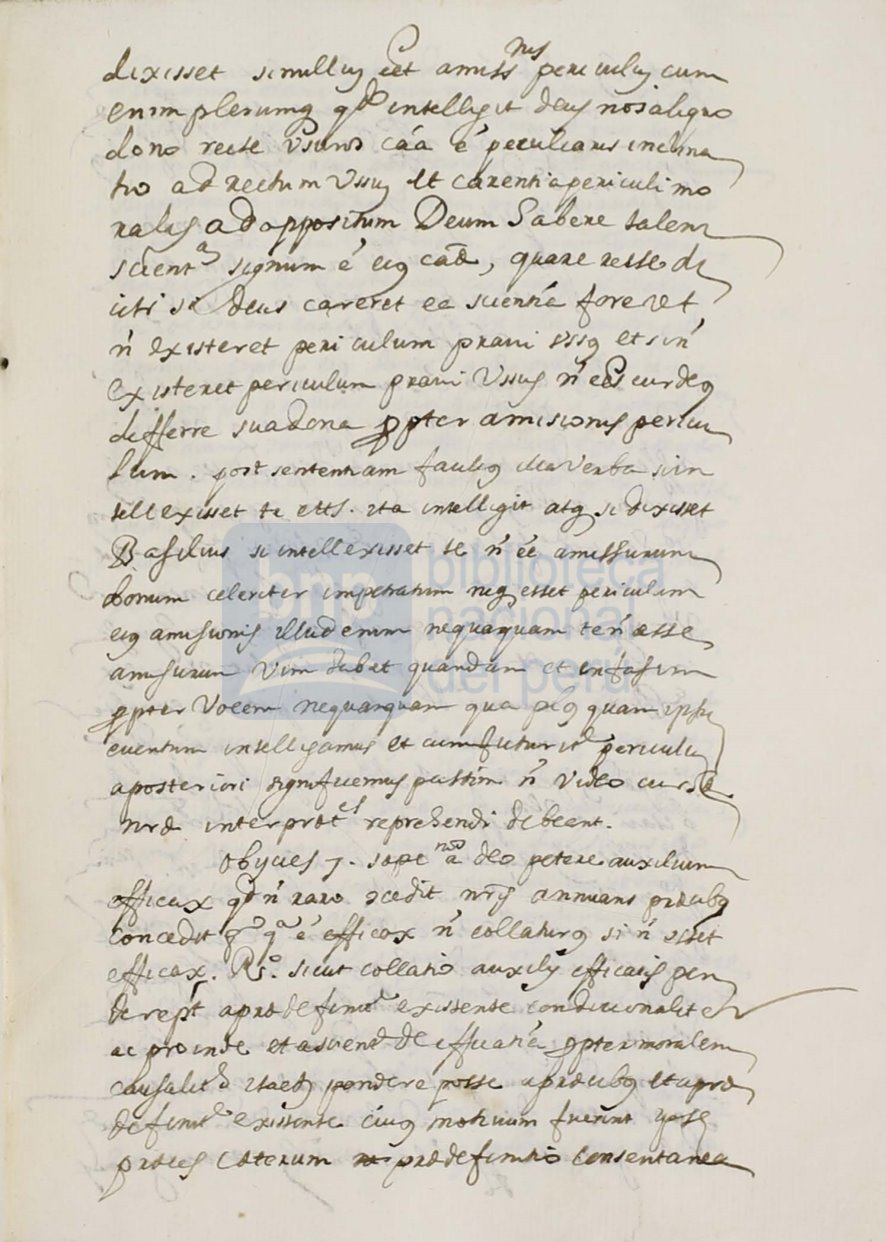 dixisset si nullus eēt amiss^nis periculuȝ cum
enim plerumq qđ intelligit deus nos aliquo
dono recte usuros cá́a é peculiaris inclina
tio ad rectum ussuȝ et carentia periculi mo
ralis ad oppositum Deum habere talem
scient^a signum é eiq cađ, quare recte di
citi si Deus careret ea scientia foret
ń existeret periculum pravi ussq et si ń
existeret periculum pravi ussus ń eēt cur deq
differre sua dona ppter amisionis pericu
lum. post sententiam illa verba si in
tellexisset te etts. ita intelligit atq si dixisset
Basilius si intellexisset te ń éé amissurum
bonum celeriter impetratum neq esset periculum
eiq amisionis illud enim nequaquam te ń esse
amisurum vim habet quandam et enfasim
ppter vocem nequanquam qua plq quam ipsu
eventum intelligamus et cum periculu
aposteriori significemus passim ń video cur
nræ interpret^es reprehendi debeant.
Obyties 7. sæpe nos a deo petere auxilium
efficax qđ ń raro nris annuans præcibq
concedit é efficax ń collaturq si ń esset
efficax. Rs^o. sicut collatio auxily efficatis pen
dere pst apredefinit^e existente condicionalit er
ac proinde et efficatia ppter moralem
causalit^e itaetȝ pendere posse apræcibq et apræ
definit^e existente ciuq motivum fuerint ipse
præces Cæterum prædefinitio consentanea